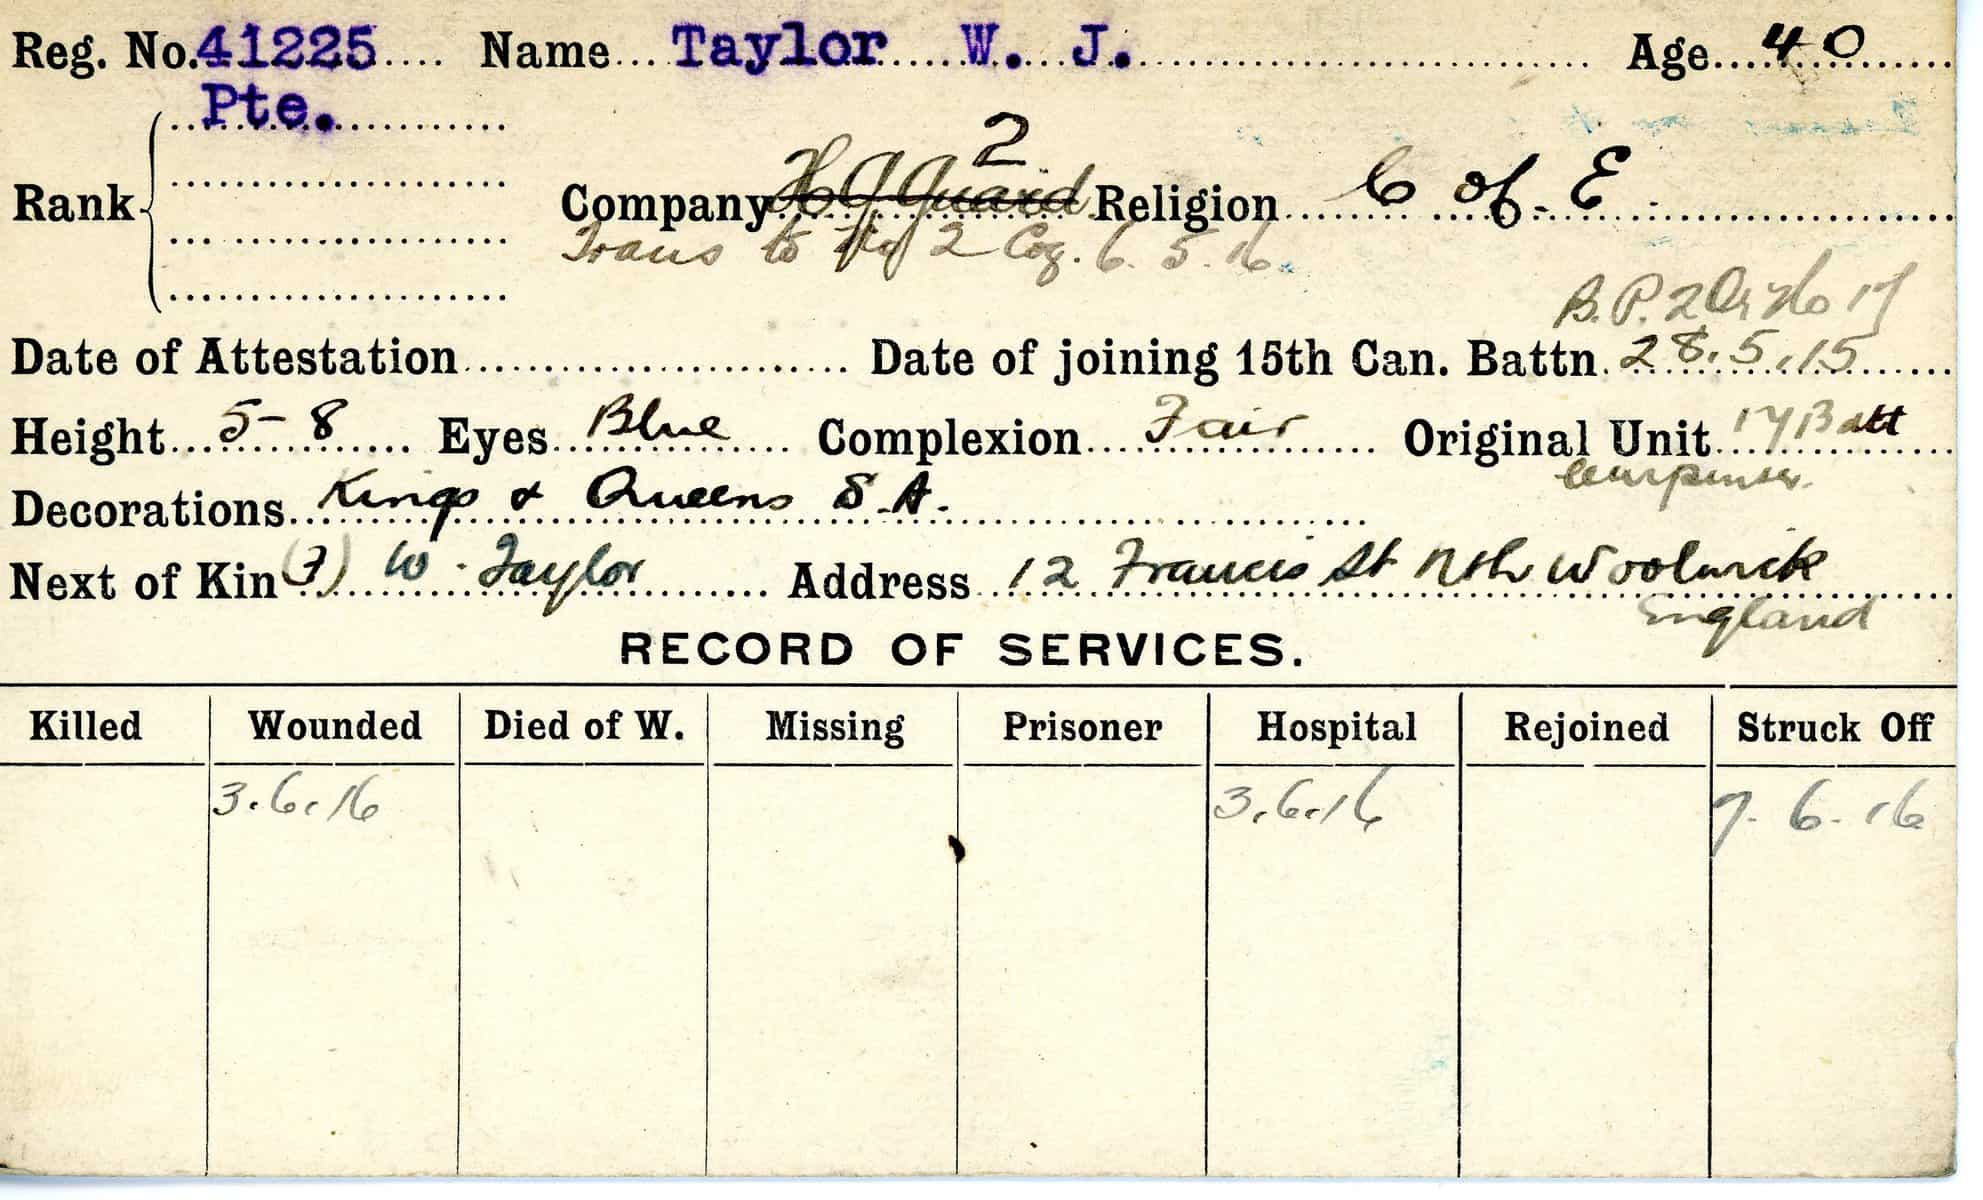 Reg. No. 41225 Name Taylor W. J. Age 40
Pte.
2
Rank Company H Q Guard Religion C of E
Trans to No 2 Coy. 6.5.16
B.P. 2
Date of Attestation Date of joining 15th Can. Battn. 28.5.15
Height 5-8 Eyes Blue Complexion Fair Original Unit 17 Batt
Carpenter.
Decorations Kings & Queens S.A.
Next of Kin (F) W. Taylor Address 12 Francis St Nth Woolwich
England
RECORD OF SERVICES.
Killed Wounded Died of W. Missing Prisoner Hospital Rejoined Struck Off
3.6.16 3.6.16 7.6.16